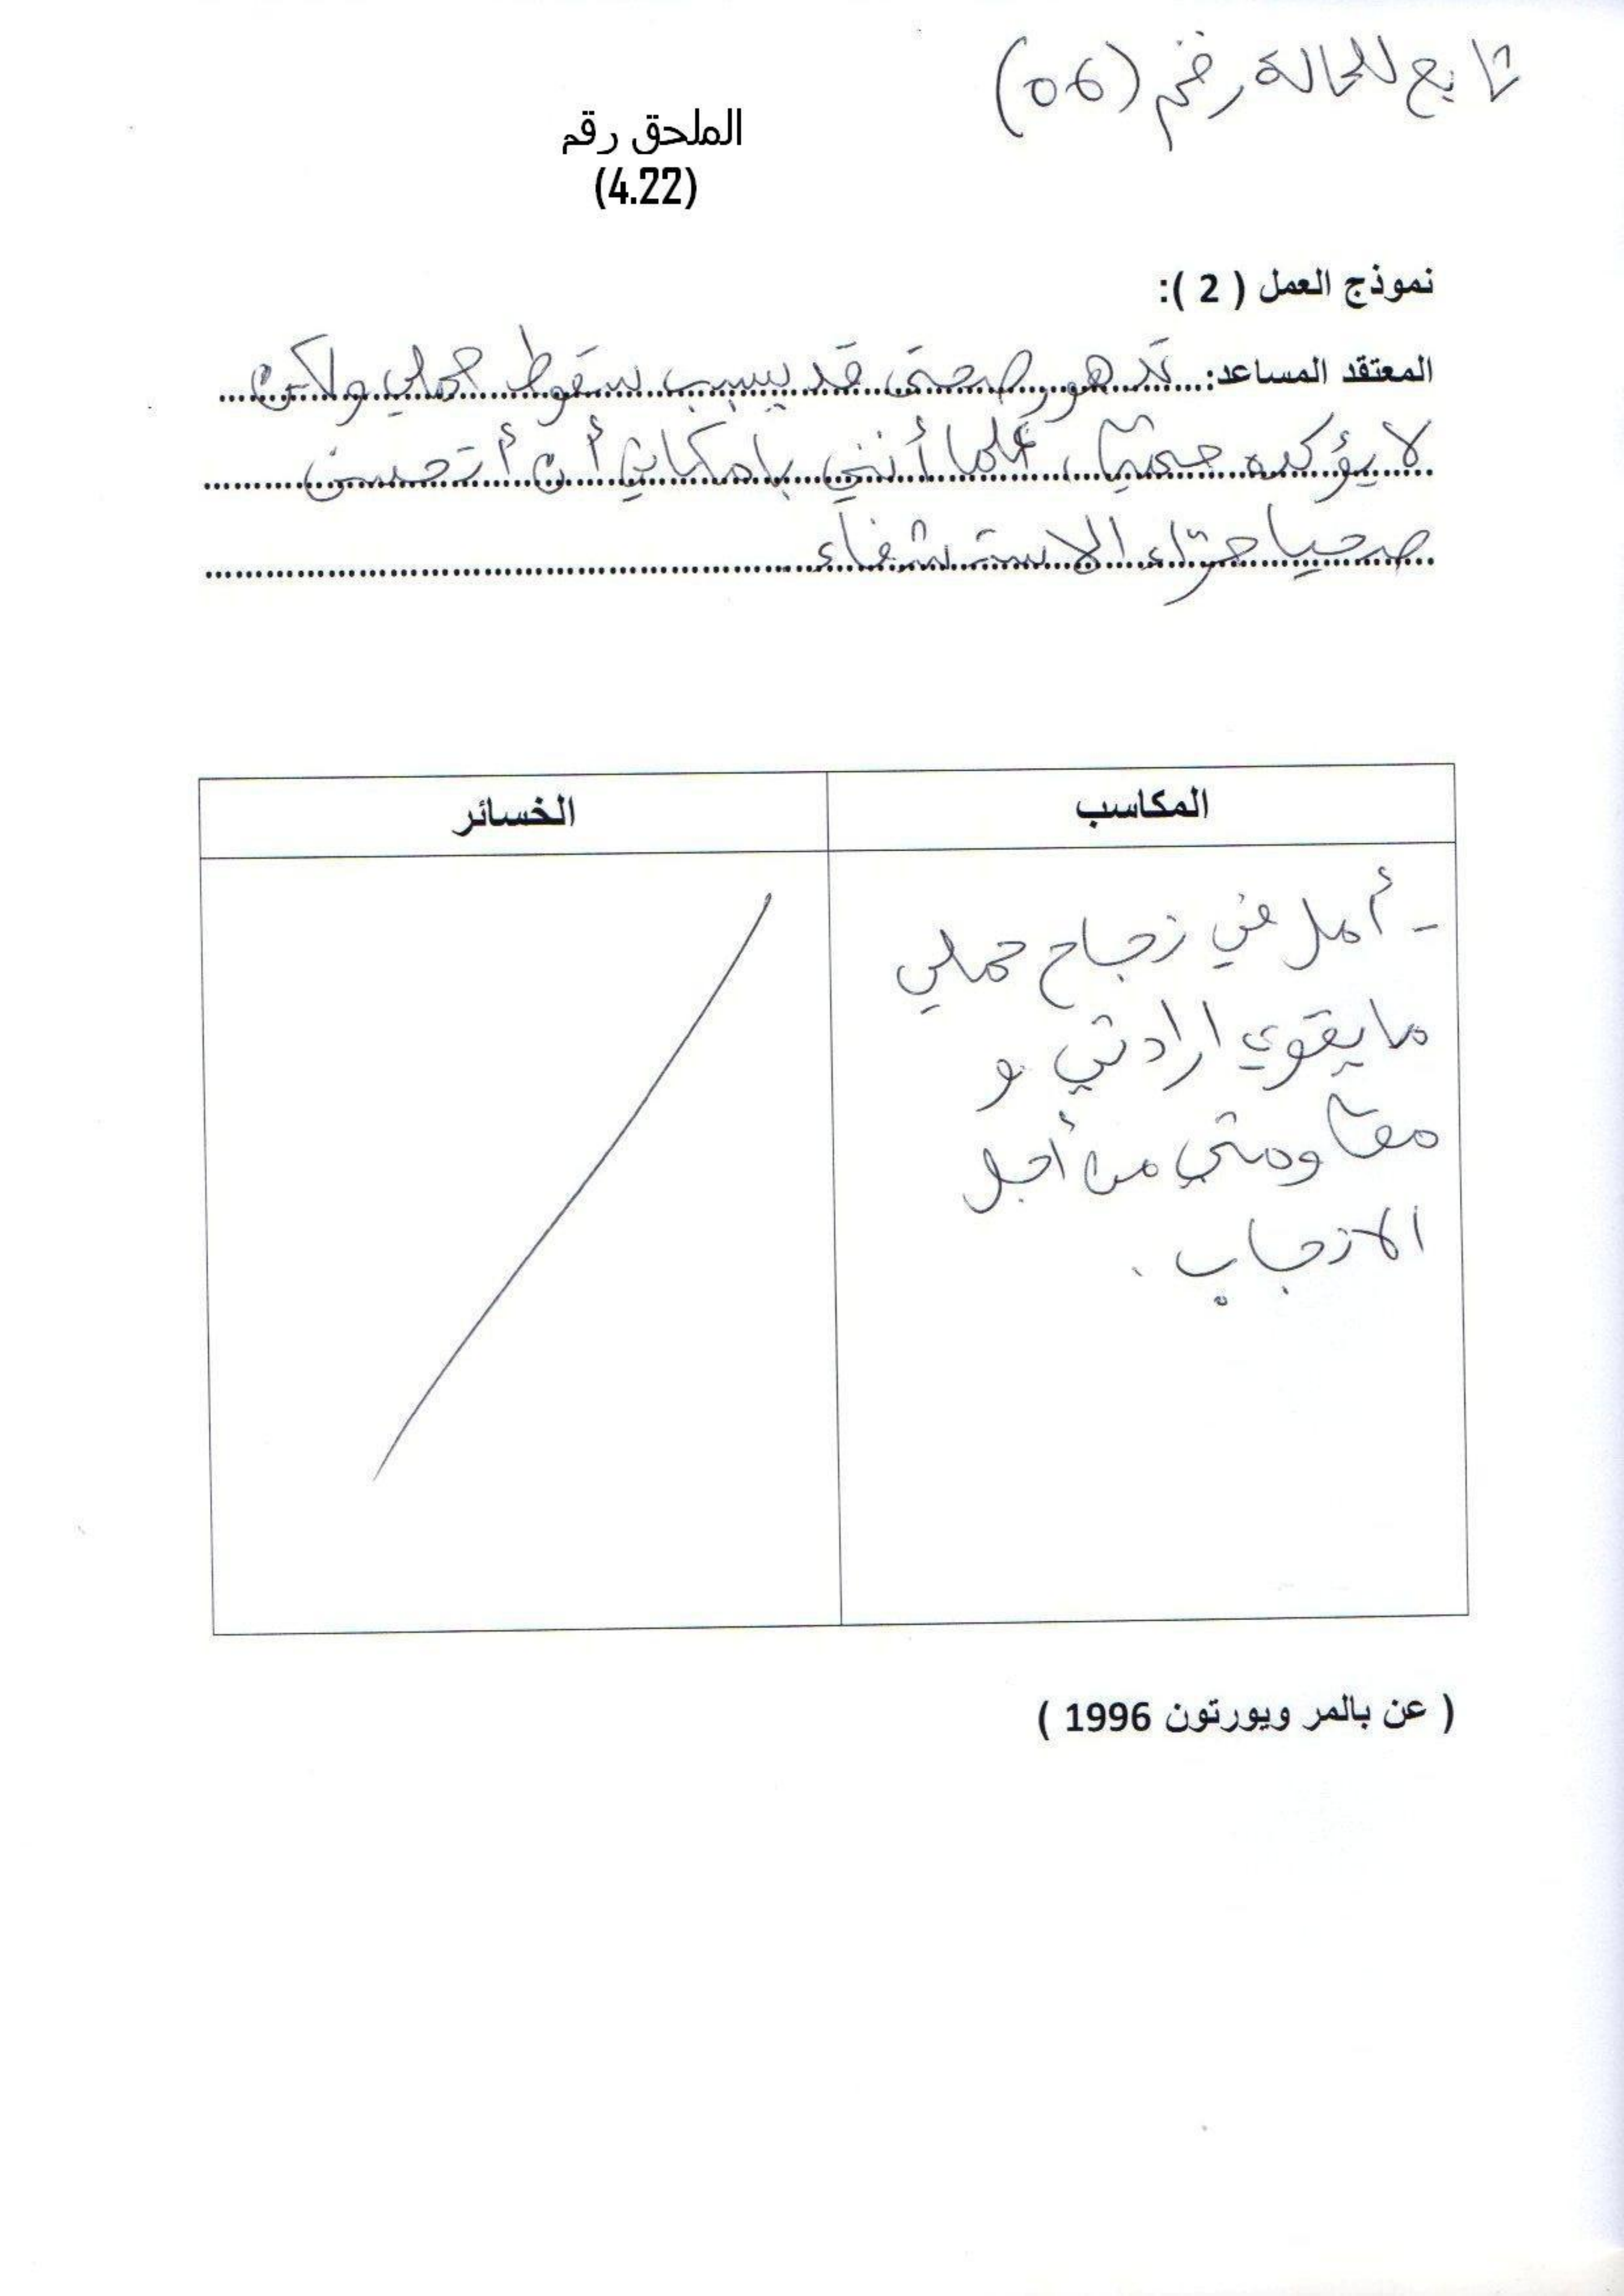 تابع للحالة رقم (06)
الملحق رقم
(4.22)
نموذج العمل ( 2 ):
المعتقد المساعد: تدهور صحتي قد يسبب سقوط حملي ولكن
لا يؤكده حتميا، علما أنني بإمكاني أن أتحسن
صحيا جراء الاستشفاء
المكاسب
الخسائر
- أمل في نجاح حملي
ما يقوي ارادتي و
مقاومتي من أجل
الانجاب.
( عن بالمر ويورتون 1996 )